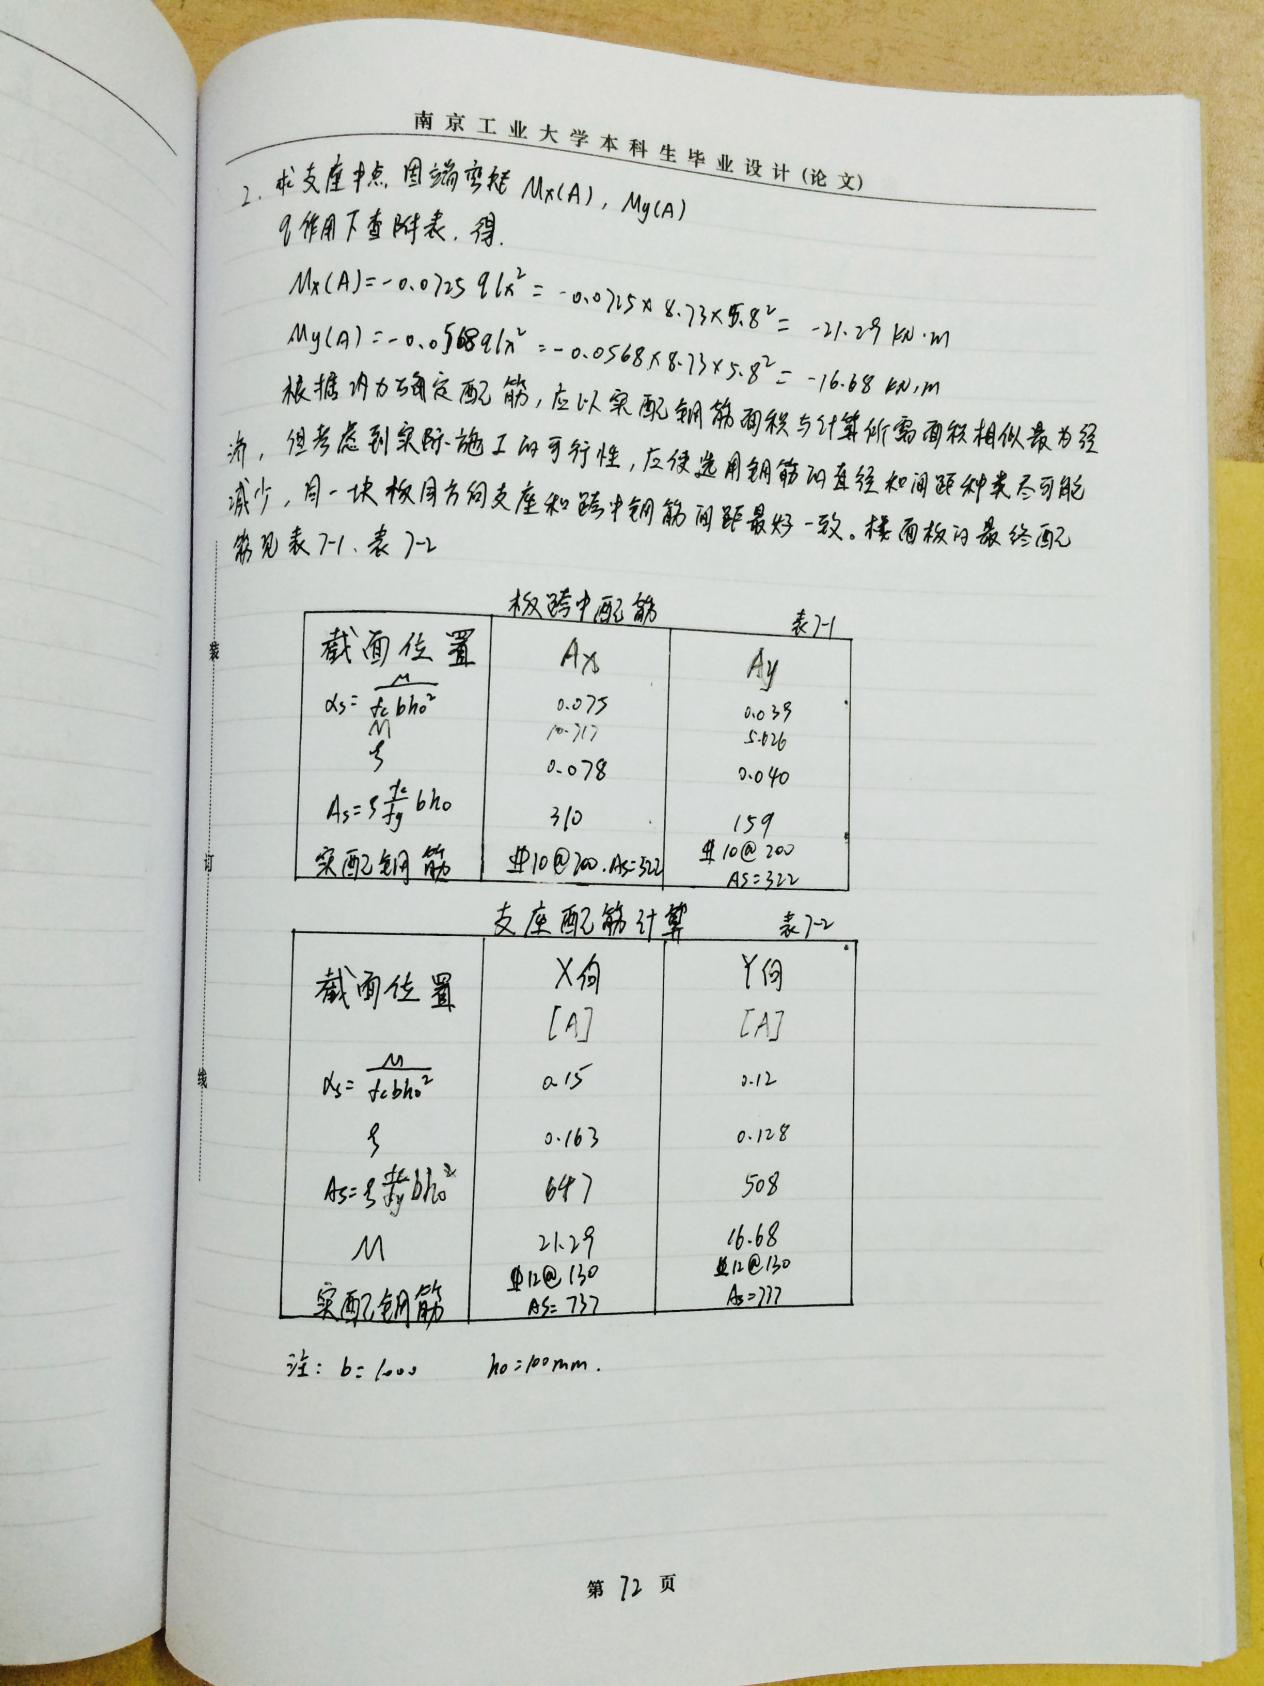 南京工业大学本科生毕业设计(论文)
2. 求支座中点固端弯矩 Mx(A), My(A)
q作用下查附表,得.
Mx(A)=-0.0725qlx²=-0.0725×8.73×5.8²=-21.29 kN·m
My(A)=-0.0568qlx²=-0.0568×8.73×5.8²=-16.68 kN·m
根据内力确定配筋,应以实配钢筋面积与计算所需面积相似最为经
济,但考虑到实际施工的可行性,应使选用钢筋的直径和间距种类尽可能
减少,同一块板同方向支座和跨中钢筋间距最好一致。楼面板的最终配
筋见表7-1、表7-2
板跨中配筋 表7-1
截面位置 Ax Ay
αs=M/fcbh₀² 0.075 0.039
M 10.717 5.626
ξ 0.078 0.040
As=ξfc/fy bh₀ 310 159
实配钢筋 ⏀10@200.As=322 ⏀10@200
AS=322
支座配筋计算 表7-2
截面位置 X向 Y向
[A] [A]
αs=M/fcbh₀² 0.15 0.12
ξ 0.163 0.128
As=ξfc/fy bh₀² 647 508
M 21.29 16.68
实配钢筋 ⏀12@130 ⏀12@130
AS=737 As=777
注: b=1000 h₀=100mm.
装
订
线
第 72 页